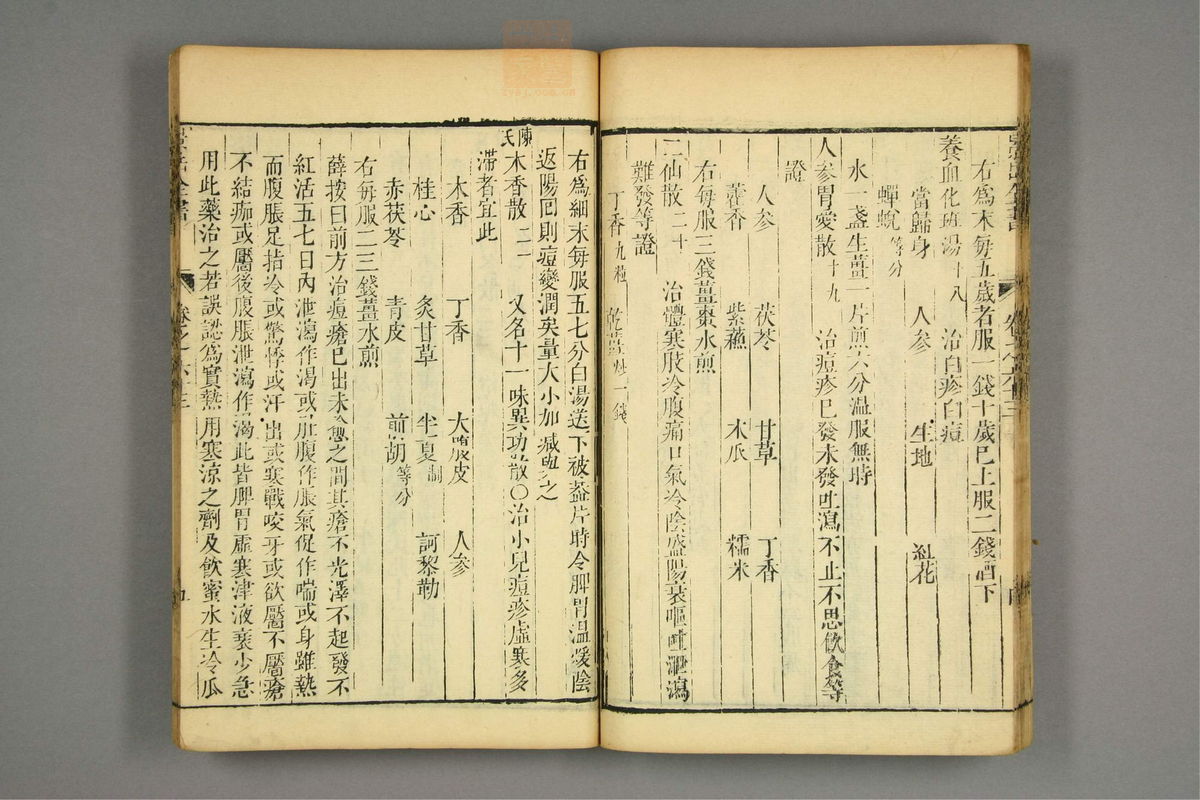 右爲末每五歲者服一錢十歲已上服二錢酒下
養血化斑湯十八　治白疹白痘
當歸身　人參　生地　紅花
蟬蛻等分
水一盞生薑一片煎六分溫服無時
人參胃愛散十九　治痘疹已發未發吐瀉不止不思飲食等
證
人參　茯苓　甘草　丁香
藿香　紫蘇　木瓜　糯米
右每服三錢薑棗水煎
二仙散二十　治體寒肢冷腹痛口氣冷陰盛陽衰嘔吐泄瀉
難發等證
丁香九粒　乾薑炮一錢
右爲細末每服五七分白湯送下被蓋片時令脾胃溫煖陰
返陽回則痘變潤矣量大小加減與之
陳氏木香散二一　又名十一味異功散〇治小兒痘疹虛寒多
滯者宜此
木香　丁香　大腹皮　人參
桂心　炙甘草　半夏制　訶黎勒
赤茯苓　青皮　前胡等分
右每服二三錢薑水煎
薛按曰前方治痘瘡已出未愈之間其瘡不光澤不起發不
紅活五七日內泄瀉作渴或肚腹作脹氣促作喘或身雖熱
而腹脹足指冷或驚悸或汗出或寒戰咬牙或欲靨不靨瘡
不結痂或靨後腹脹泄瀉作渴此皆脾胃虛寒津液衰少急
用此藥治之若誤認爲實熱用寒涼之劑及飲蜜水生冷瓜
景岳全書　卷之六十三